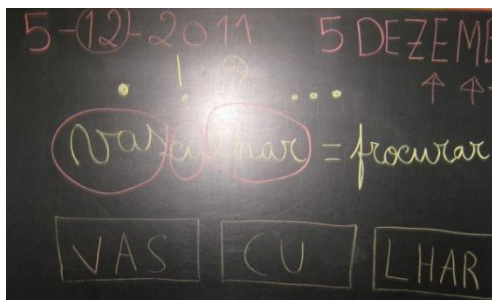 5-12-2011 5 DEZEMB
. ! ? ...
vasculhar = procurar
VAS CU LHAR